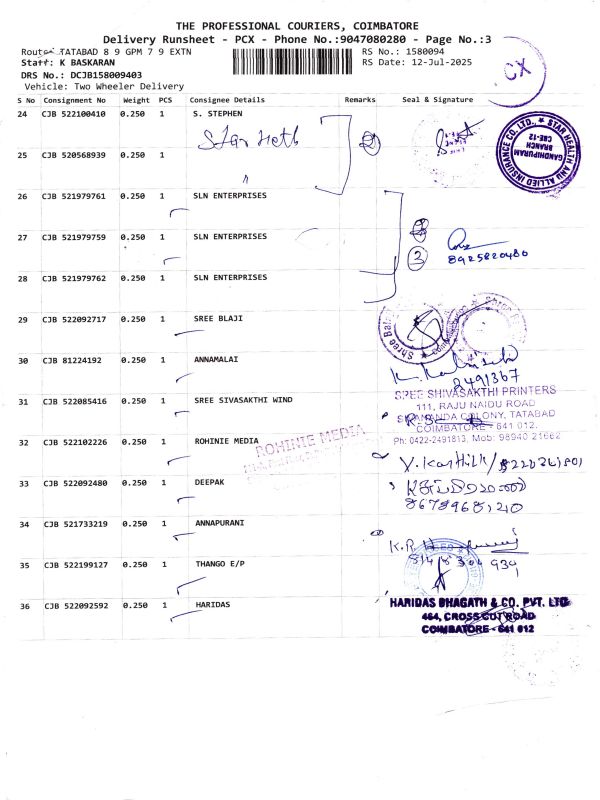 THE PROFESSIONAL COURIERS, COIMBATORE
Delivery Runsheet - PCX - Phone No.:9047080280 - Page No.:3
Route: TATABAD 8 9 GPM 7 9 EXTN
RS No.: 1580094
Staff: K BASKARAN
RS Date: 12-Jul-2025
DRS No.: DCJB158009403
Vehicle: Two Wheeler Delivery
CX
S No Consignment No Weight PCS Consignee Details Remarks Seal & Signature
24 CJB 522100410 0.250 1 S. STEPHEN
Star Helth
2
STAR HEALTH AND ALLIED INSURANCE CO. LTD.,
GANDHIPURAM
BRANCH
CBE-12
25 CJB 520568939 0.250 1
26 CJB 521979761 0.250 1 SLN ENTERPRISES
27 CJB 521979759 0.250 1 SLN ENTERPRISES
2
8925820480
28 CJB 521979762 0.250 1 SLN ENTERPRISES
29 CJB 522092717 0.250 1 SREE BLAJI
30 CJB 81224192 0.250 1 ANNAMALAI
8491367
31 CJB 522085416 0.250 1 SREE SIVASAKTHI WIND
SREE SHIVASAKTHI PRINTERS
111, RAJU NAIDU ROAD
SIVANANDA COLONY, TATABAD
COIMBATORE - 641 012.
Ph: 0422-2491813, Mob: 98940 21662
32 CJB 522102226 0.250 1 ROHINIE MEDIA
ROHINIE MEDIA
V. Karthik
33 CJB 522092480 0.250 1 DEEPAK
34 CJB 521733219 0.250 1 ANNAPURANI
K.R.
35 CJB 522199127 0.250 1 THANGO E/P
36 CJB 522092592 0.250 1 HARIDAS
HARIDAS BHAGATH & CO. PVT. LTD
464, CROSS CUT ROAD
COIMBATORE - 641 012